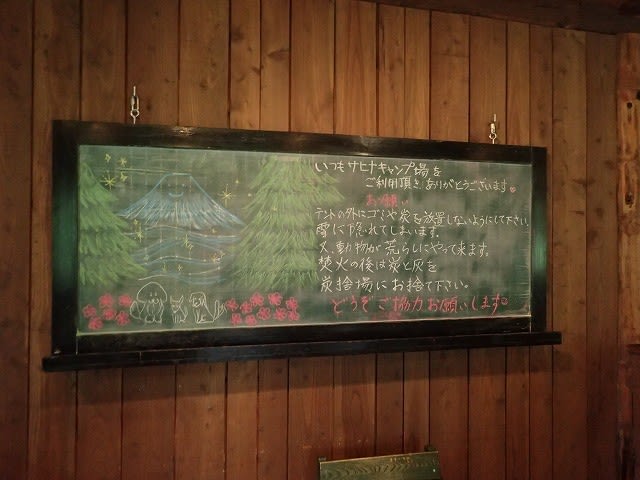 いつもサヒナキャンプ場を
ご利用頂き ありがとうございます
お願い
テントの外にゴミや炭を放置しないようにして下さい。
雪に隠れてしまいます。
又、動物が荒らしにやって来ます。
焚火の後は炭と灰を
炭捨場にお捨て下さい。
どうぞご協力お願いします